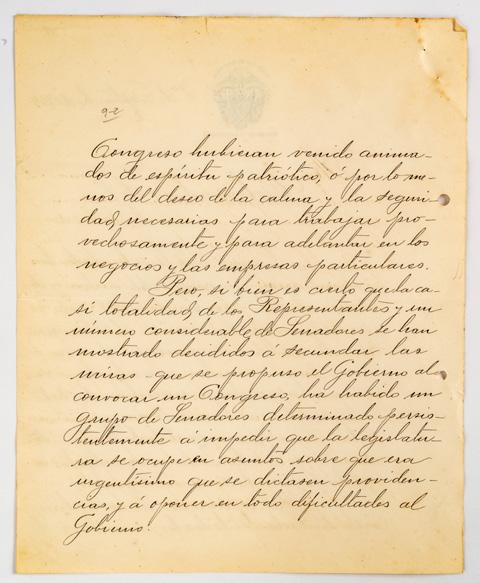 9-2
Congreso hubieran venido anima-
dos de espíritu patriótico, ó por lo me-
nos del deseo de la calma y la seguri-
dad, necesarias para trabajar pro-
vechosamente y para adelantar en los
negocios y las empresas particulares.
Pero, si bien es cierto que la ca-
si totalidad de los Representantes y un
número considerable de Senadores se han
mostrado decididos á secundar las
miras que se propuso el Gobierno al
convocar un Congreso, ha habido un
grupo de Senadores determinado persis-
tentemente á impedir que la legislatu-
ra se ocupe en asuntos sobre que era
urgentísimo que se dictasen providen-
cias, y á oponer en todo dificultades al
Gobierno.